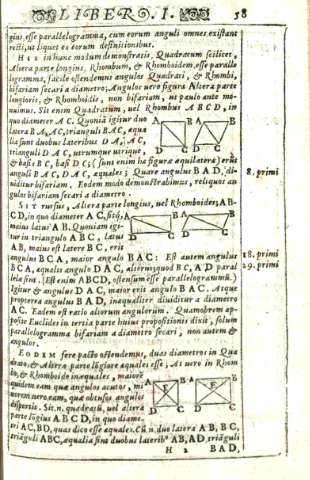 LIBER I. 58
gius, esse parallelogramma, cum eorum anguli omnes existant
recti, ut liquet ex eorum definitionibus.
HIS in hunc modum demonstratis, Quadratum scilicet,
Altera parte longius, Rhombum, & Rhomboidem, esse paralle
logramma, facile ostendemus angulos Quadrati, & Rhombi,
bifariam secari a diametro; Angulos uero figuræ Altera parte
longioris, & Rhomboidis, non bifariam, ut paulo ante mo-
nuimus. Sit enim Quadratum, uel Rhombus ABCD, in
quo diameter AC. Quoniã igitur duo
latera BA, AC, trianguli BAC, æqua
lia sunt duobus lateribus DA, AC,
trianguli DAC, utrumque utrique,
& basis BC, basi DC; (sunt enim hæ figuræ æquilateræ) erũt
anguli BAC, DAC, æquales; Quare angulus BAD, di-
uiditur bifariam. Eodem modo demonstrabimus, reliquos an
gulos bifariam secari a diametro.
8. primi
A B A B
D C D C
SIT rursus, Altera parte longius, uel Rhomboides; AB-
CD, in quo diameter AC, sitq́;
maius latus AB. Quoniam igi-
tur in triangulo ABC, latus
AB, maius est latere BC, erit
angulus BCA, maior angulo BAC: Est autem angulus
BCA, æqualis angulo DAC, alternus; quod BC, AD paral
lelæ sint. (Est enim ABCD, ostensum esse parallelogrammũ.)
Igitur & angulus DAC, maior erit angulo BAC. Atque
propterea angulus BAD, inæqualiter diuiditur a diametro
AC. Eadem est ratio aliorum angulorum. Quamobrem ap-
posite Euclides in tertia parte huius propositionis dixit, solum
parallelogramma bifariam a diametro secari, non autem &
angulos.
18. primi
29. primi
A B A B
D C D C
EODEM fere pacto ostendemus, duas diametros in Qua
drato, & Altera parte lõgiore æquales esse; At uero in Rhom
bo, & Rhomboide inæquales, maiorẽ
quidem eam quæ angulos acutos, mi
norem uero eam, quæ obtusos angulos
dispertit. Sit.n. quadratũ, uel altera
parte lõgius ABCD, in quo diame-
tri AC, BD, quas dico esse æquales. Cũ.n. duo latera AB, BC,
triãguli ABC, æqualia sint duobus laterib' AB, AD, triãguli
A B A B
E E
D C D C
H 2 BAD,